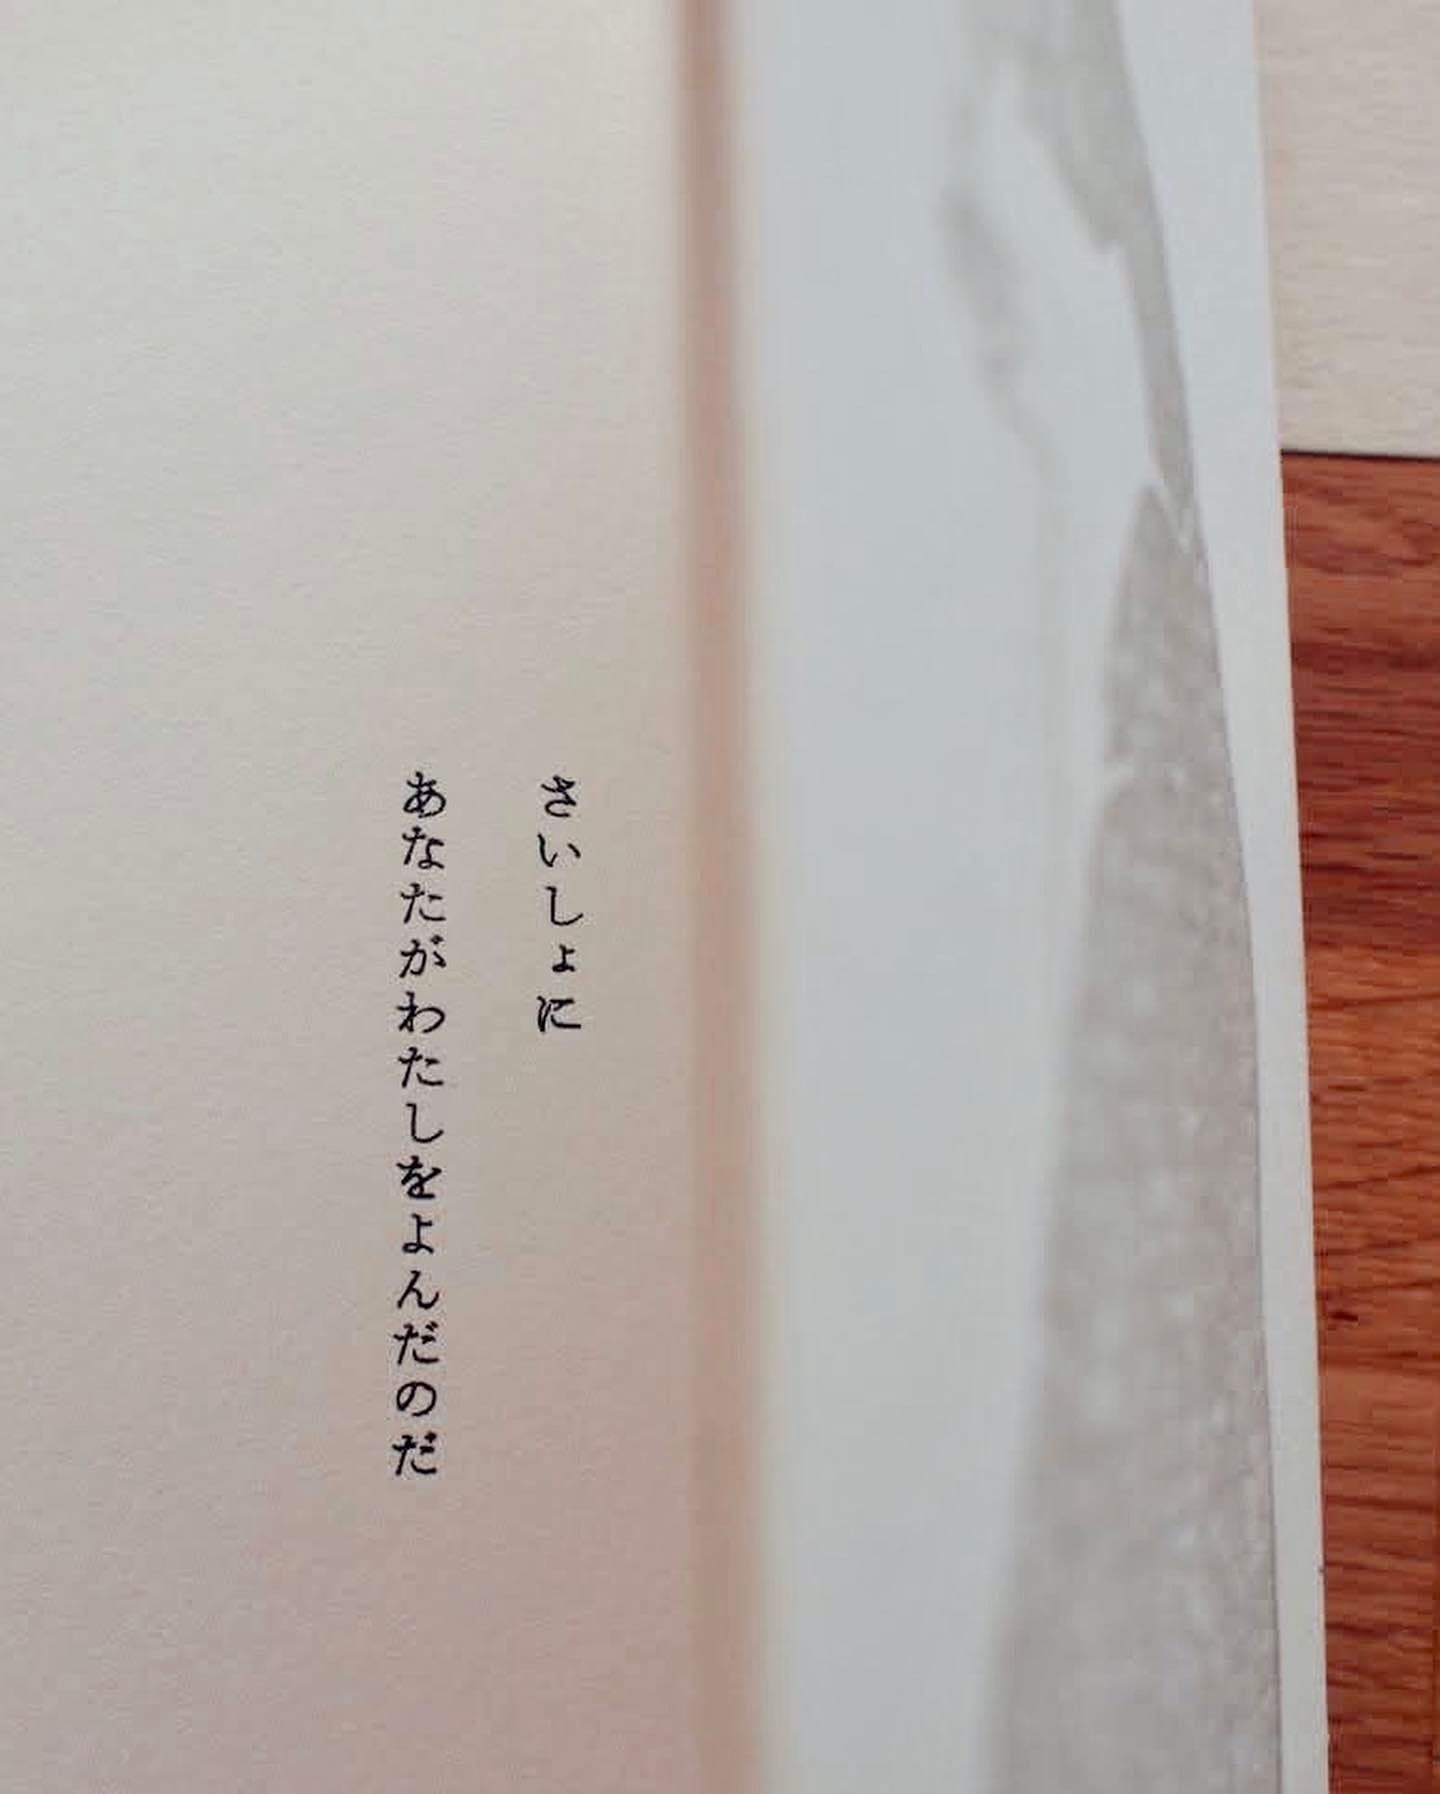 さいしょに
あなたがわたしをよんだのだ